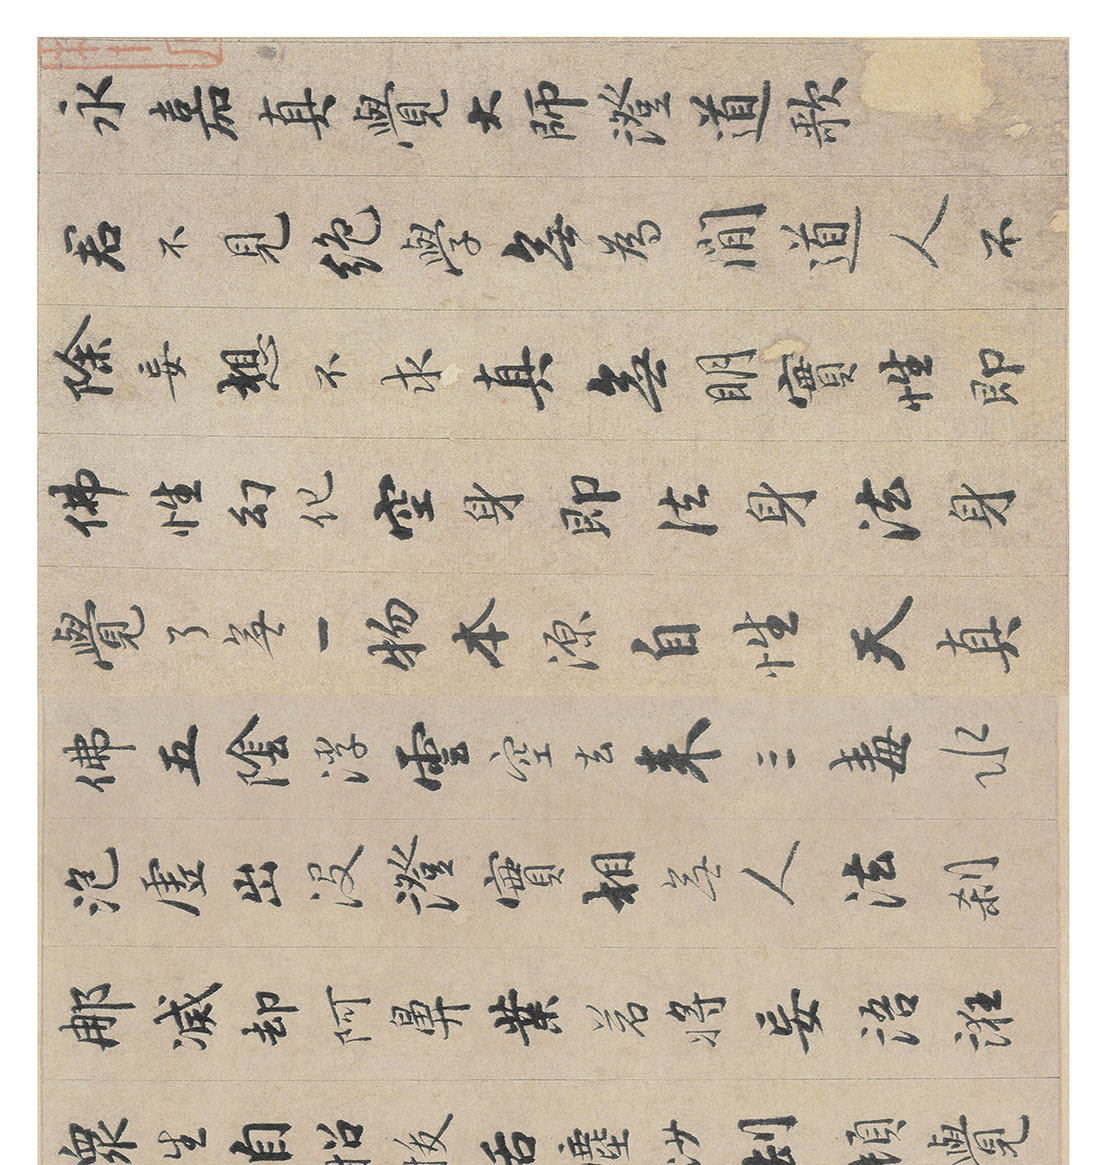 永嘉真覺大師證道歌
君不見絕學無為閒道人不
除妄想不求真無明實性即
佛性幻化空身即法身法身
覺了無一物本源自性天真
佛五陰浮雲空去來三毒水
泡虛出沒證實相無人法剎
那滅却阿鼻業若將妄語誑
眾生自招拔舌塵沙劫頓覺